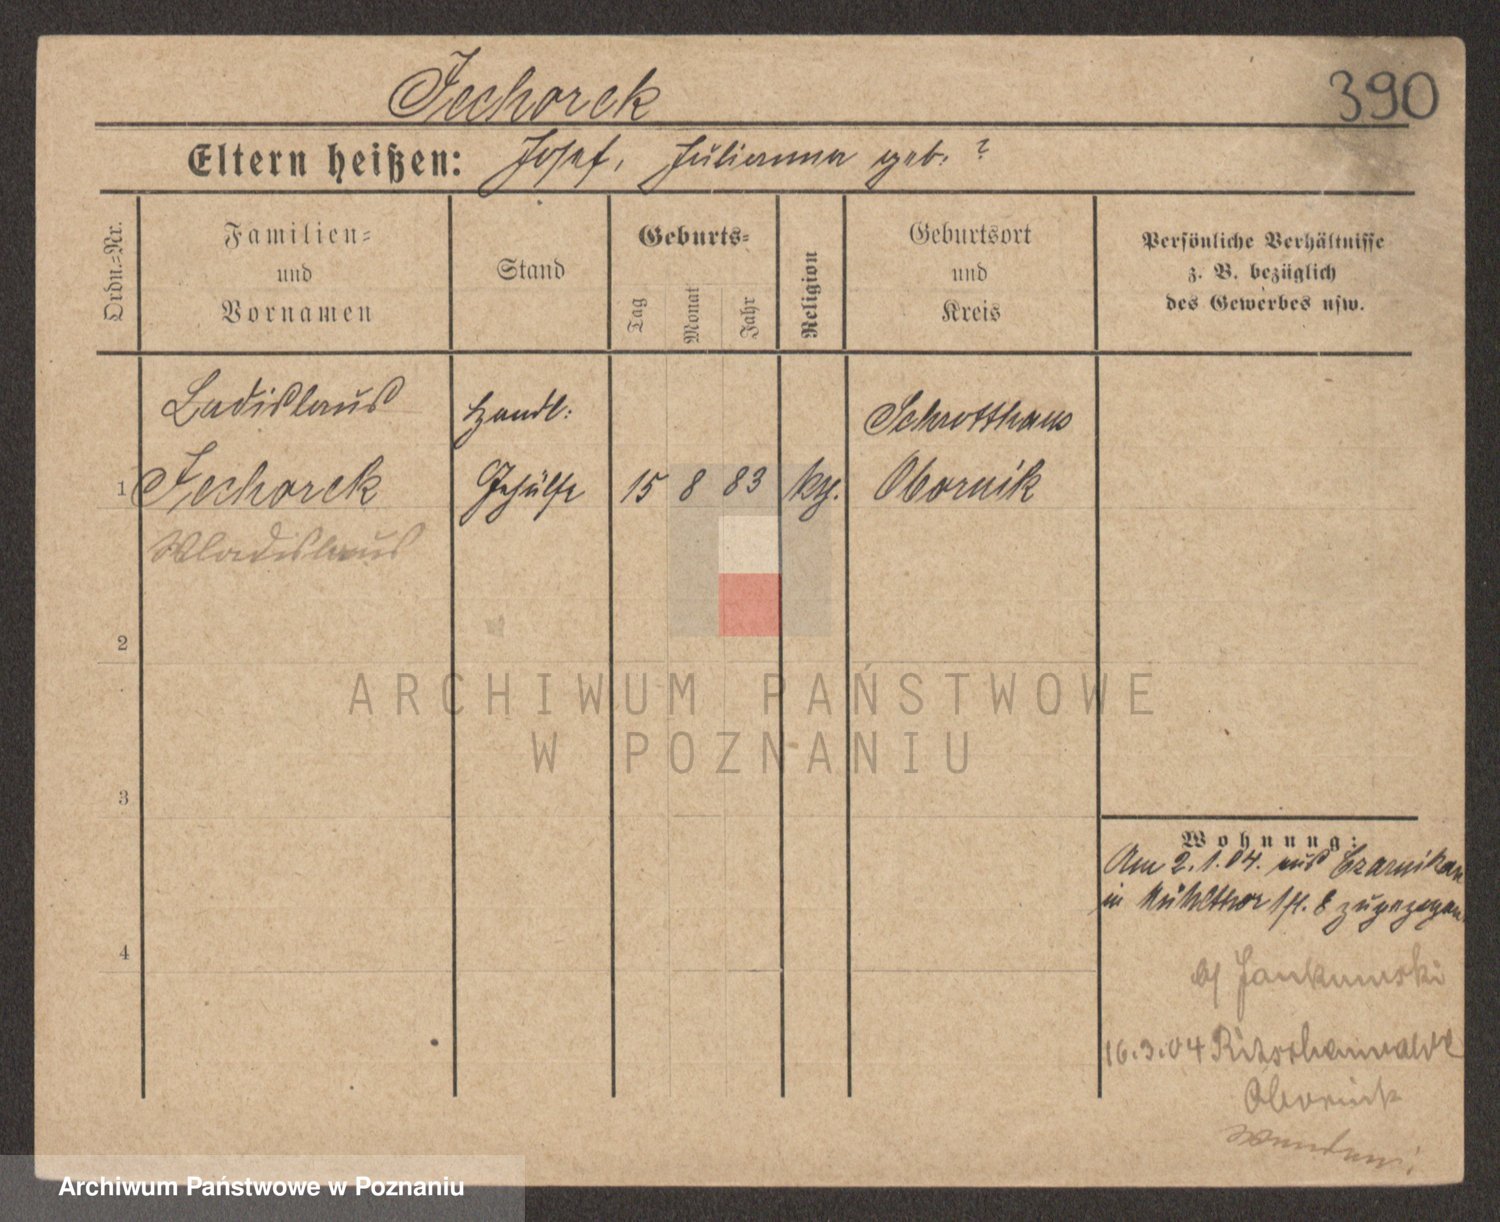 Jechorek
390
Eltern heißen: Josef, Julianna geb. ?
Ordn.-Nr.
Familien-
und
Vornamen
Stand
Geburts-
Tag
Monat
Jahr
Religion
Geburtsort
und
Kreis
Persönliche Verhältnisse
z. B. bezüglich
des Gewerbes usw.
Ladislaus
Handl:
Schrotthaus
1 Jechorek Gehülfe 15 8 83 Obornik
Wladislaus
2
3
4
Wohnung:
Am 2.1.04. aus Czarnikau
in Mühlthor 8 zugezogen
Jankowski
16.3.04 Ritschenwalde
Obornik
Wenden!
ARCHIWUM PAŃSTWOWE
W POZNANIU
Archiwum Państwowe w Poznaniu